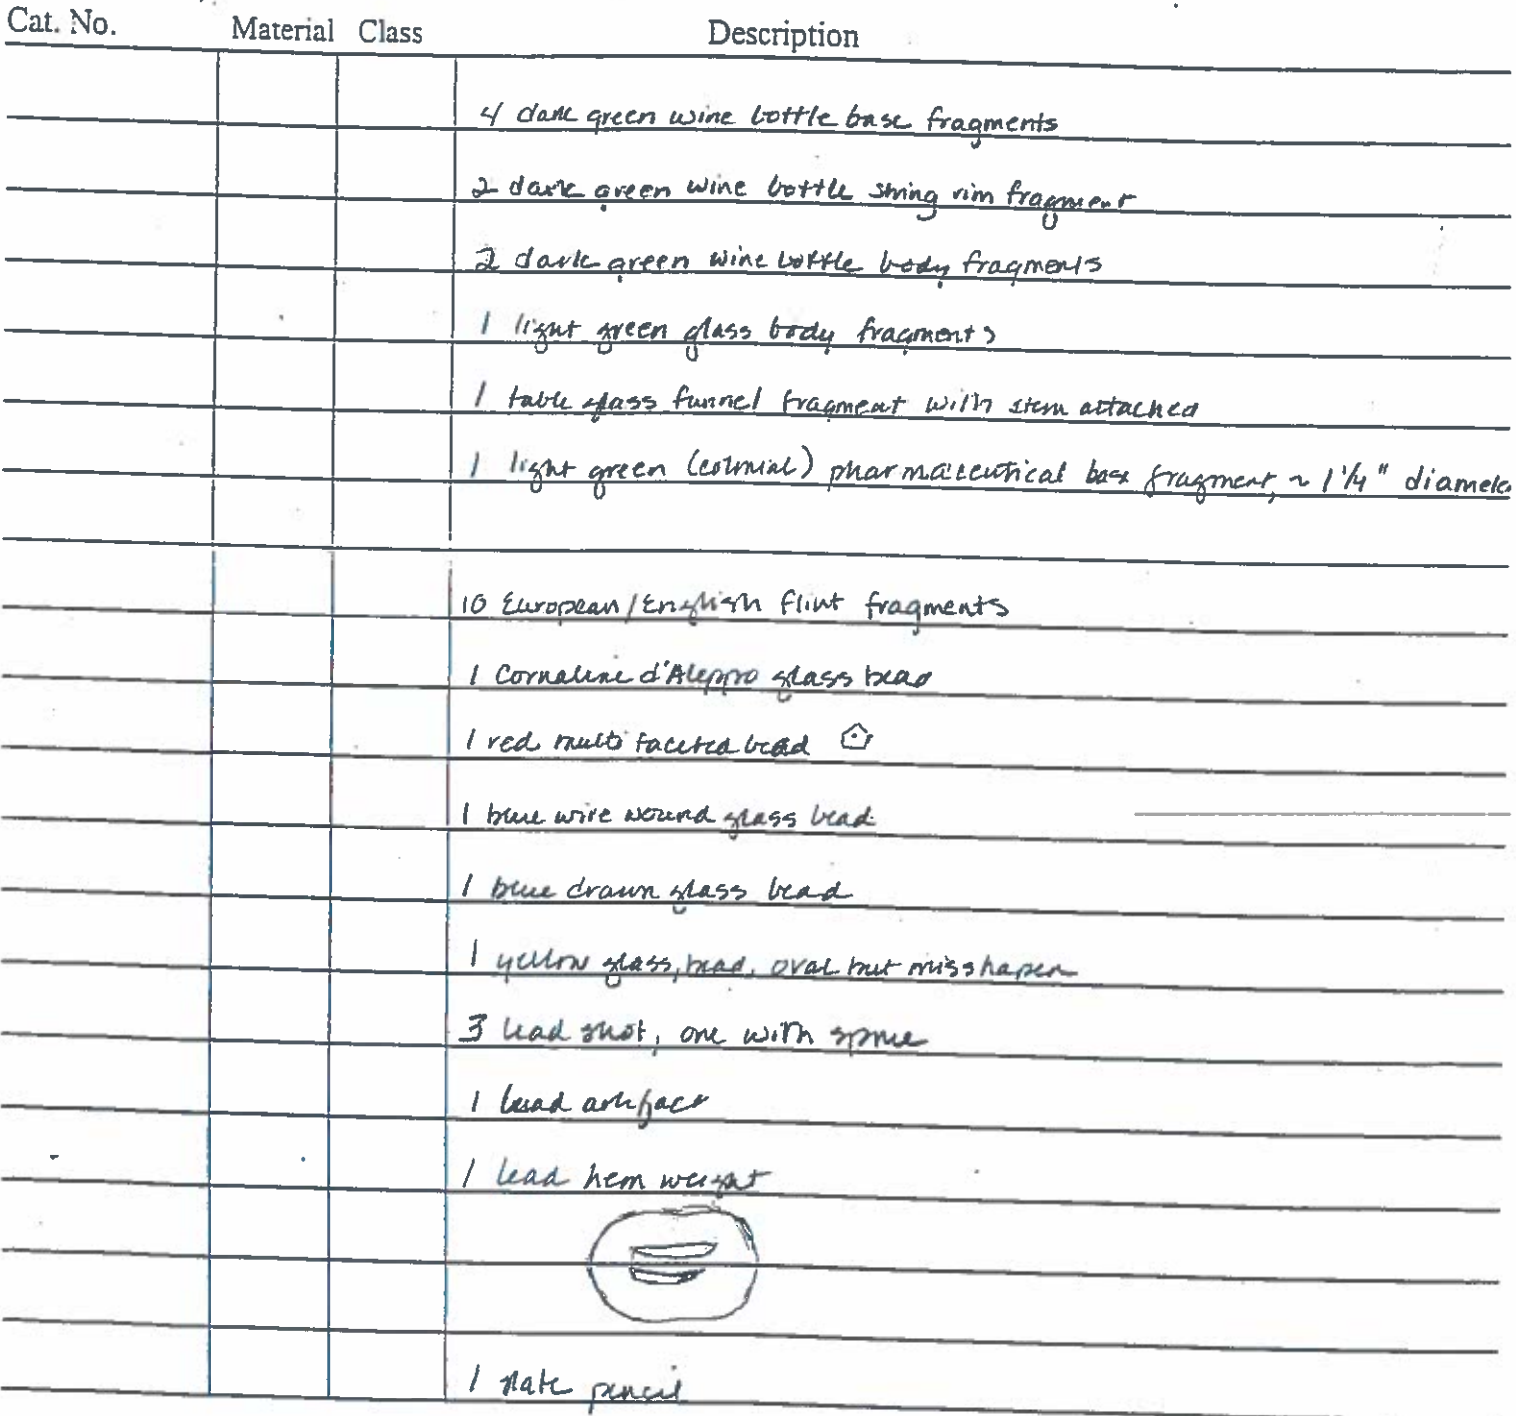 Cat. No. Material Class Description
4 dark green wine bottle base fragments
2 dark green wine bottle string rim fragment
2 dark green wine bottle body fragments
1 light green glass body fragments
1 table glass funnel fragment with stem attached
1 light green (colonial) pharmaceutical base fragment, ~ 1 1/4" diamete
10 European/English flint fragments
1 Cornaline d'Aleppo glass bead
1 red multi faceted bead
1 blue wire wound glass bead
1 blue drawn glass bead
1 yellow glass, bead, oval but misshapen
3 lead shot, one with sprue
1 lead artifact
1 lead hem weight
1 slate pencil